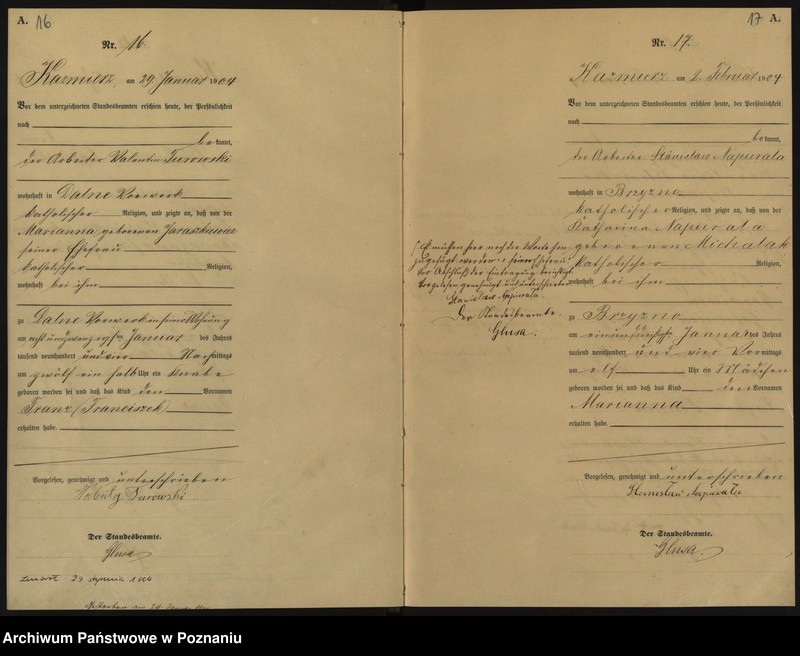 A. 16
Nr. 16
Kazmierz, am 29 Januar 1904
Vor dem unterzeichneten Standesbeamten erschien heute, der Persönlichkeit
nach
bekannt,
der Arbeiter Valentin Turowski
wohnhaft in Dalne Vorwerk
katholischer Religion, und zeigte an, daß von der
Marianna geborenen Jaraszkiewicz
seiner Ehefrau
katholischer Religion,
wohnhaft bei ihm
zu Dalne Vorwerk in seiner Wohnung
am achtundzwanzigsten Januar des Jahres
tausend neunhundert und vier Nachmittags
um zwölf ein halb Uhr ein Knabe
geboren worden sei und daß das Kind den Vornamen
Franz (Franciszek)
erhalten habe.
Vorgelesen, genehmigt und unterschrieben
Turowski
Der Standesbeamte.
Glusa
29 stycznia 1904
Gestorben am 29
17 A.
Nr. 17.
Kazmierz am 2. Februar 1904
Vor dem unterzeichneten Standesbeamten erschien heute, der Persönlichkeit
nach
bekannt,
der Arbeiter Stanislaw Napierala
wohnhaft in Brzyzno
katholischer Religion, und zeigte an, daß von der
Katharina Napierala
geborenen Michalak
katholischer Religion,
wohnhaft bei ihm
zu Brzyzno
am einunddreißigsten Januar des Jahres
tausend neunhundert und vier Vormittags
um elf Uhr ein Mädchen
geboren worden sei und daß das Kind den Vornamen
Marianna
erhalten habe.
Vorgelesen, genehmigt und unterschrieben
Stanislaw Napierala
Der Standesbeamte.
Glusa
Es müssen hier noch die Worte hin
zugefügt werden: seiner Ehefrau
vor Abschluß der Eintragung berichtigt
Vorgelesen genehmigt und unterschrieben
Stanislaw Napierala
Der Standesbeamte
Glusa.
Archiwum Państwowe w Poznaniu